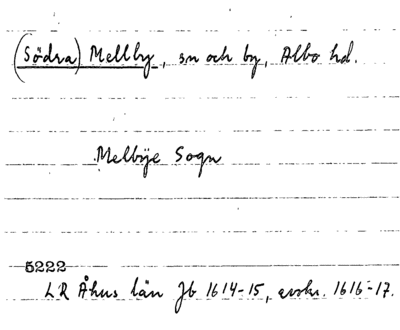 (Södra) Mellby, sn och by, Albo hd.
Melbÿe Sogn
5222
LR Åhus län Jb 1614-15, avskr. 1616-17.